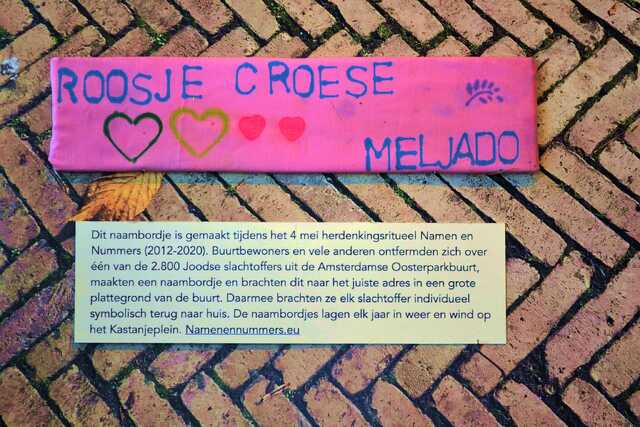 ROOSJE CROESE
MELJADO
Dit naambordje is gemaakt tijdens het 4 mei herdenkingsritueel Namen en
Nummers (2012-2020). Buurtbewoners en vele anderen ontfermden zich over
één van de 2.800 Joodse slachtoffers uit de Amsterdamse Oosterparkbuurt,
maakten een naambordje en brachten dit naar het juiste adres in een grote
plattegrond van de buurt. Daarmee brachten ze elk slachtoffer individueel
symbolisch terug naar huis. De naambordjes lagen elk jaar in weer en wind op
het Kastanjeplein. Namenennummers.eu